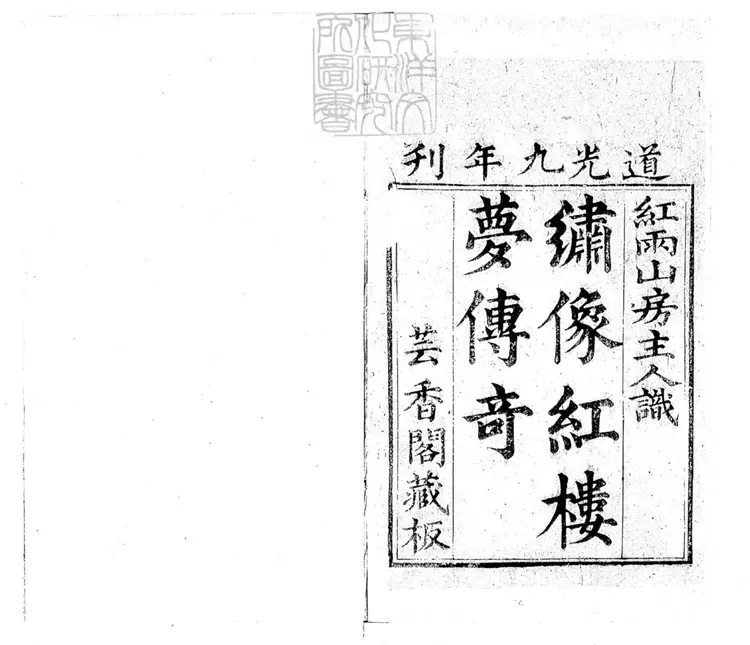 道光九年刊
紅雨山房主人識
繡像紅樓
夢傳奇
芸香閣藏板
東洋文
化研究
所圖書